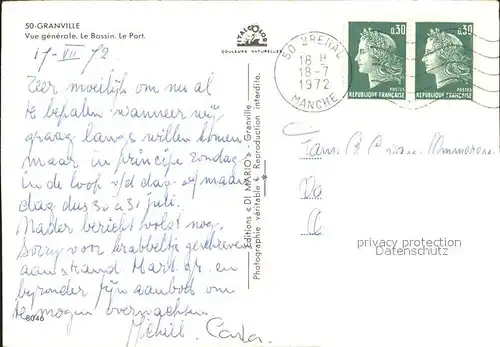 50-GRANVILLE
Vue générale. Le Bassin. Le Port.
ITALCOLOR
COULEURS NATURELLES
17-VII 72
Zeer moeilijk om nu al
te bepalen wanneer wij
graag langs willen komen
maar in principe zondag
in de loop v/d dag of maan
dag dus 30 à 31 juli.
Nader bericht volgt nog.
Sorry voor krabbeltje geschreven
aan strand. Hart. gr. en
bijzonder fijn aanbod om
te mogen overnachten.
Michiel. Carla.
6046
Editions « DI MARIO » - Granville
Photographie véritable - Reproduction interdite.
50 BREHAL
18 H
18-7
1972
MANCHE
0,30
POSTES
REPUBLIQUE FRANÇAISE
0,30
POSTES
REPUBLIQUE FRANÇAISE
Fam. van Ammeren
privacy protection
Datenschutz